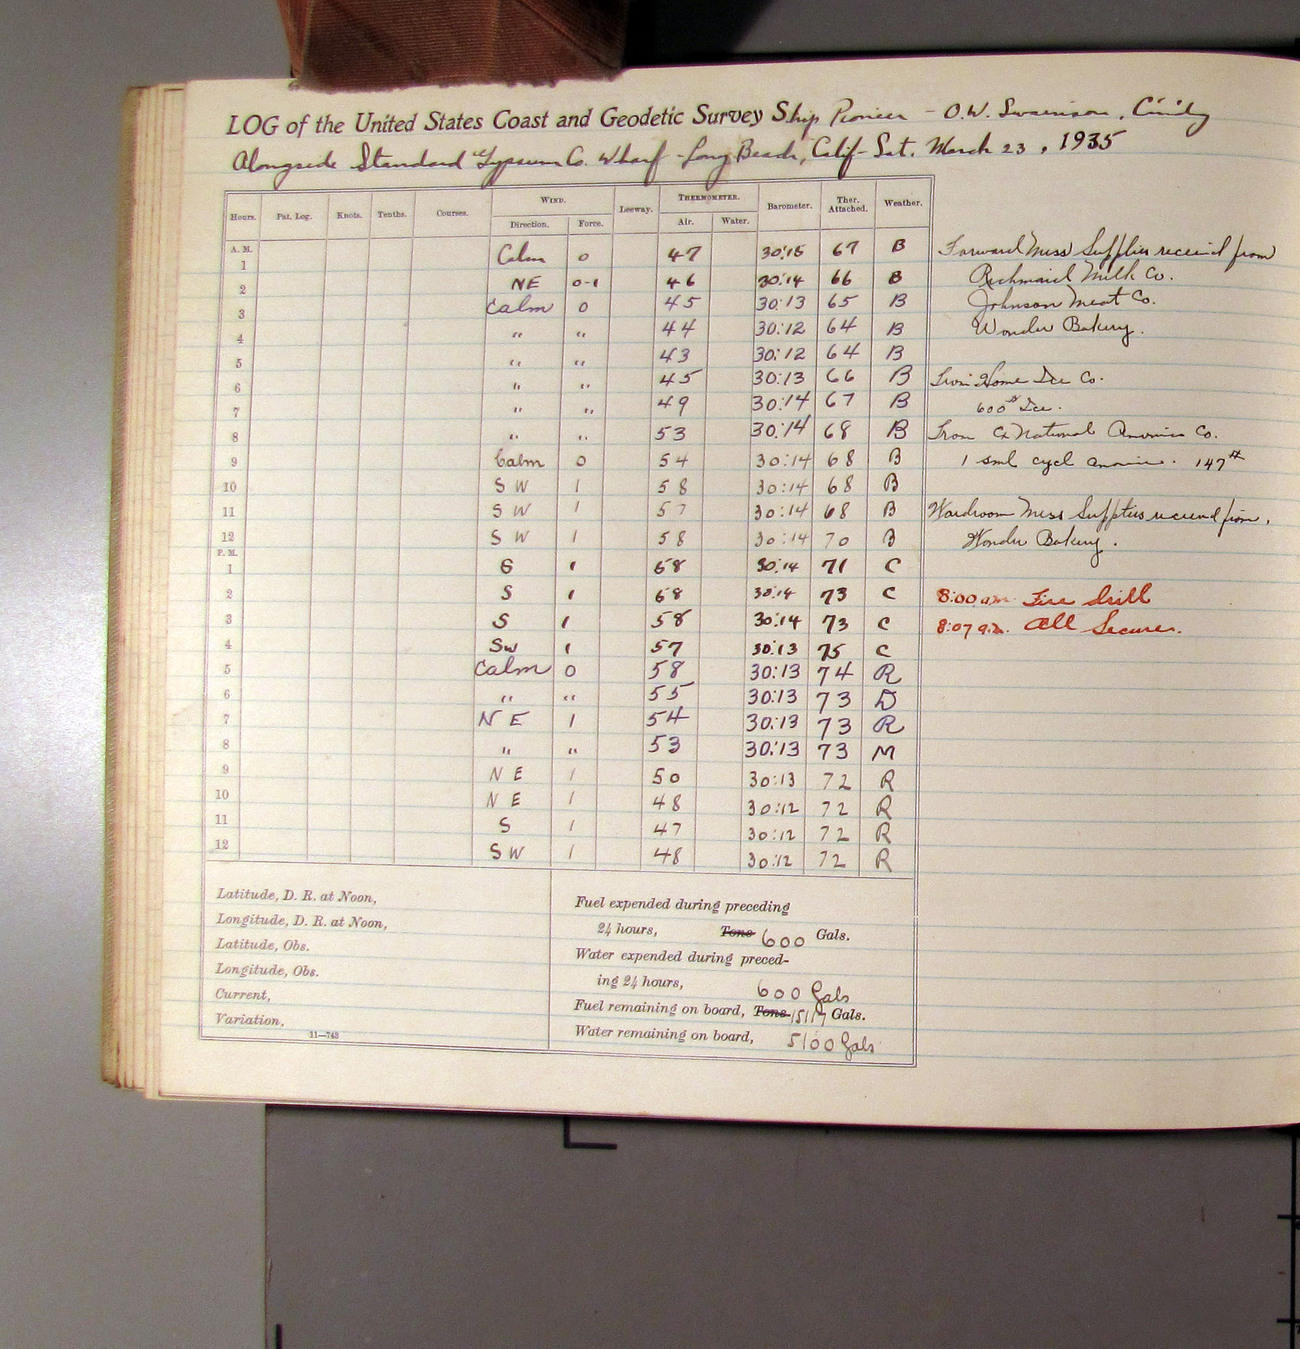 LOG of the United States Coast and Geodetic Survey Ship Pioneer - O.W. Swainson, Cmdg
Alongside Standard Gypsum Co. Wharf - Long Beach, Calif - Sat. March 23, 1935
Hours. Pat. Log. Knots. Tenths. Courses. WIND. Leeway. THERMOMETER. Barometer. Ther. Attached. Weather.
Direction. Force. Air. Water.
A. M.
1 Calm 0 47 30:15 67 B
2 NE 0-1 46 30:14 66 B
3 Calm 0 45 30:13 65 B
4 " " 44 30:12 64 B
5 " " 43 30:12 64 B
6 " " 45 30:13 66 B
7 " " 49 30:14 67 B
8 " " 53 30:14 68 B
9 Calm 0 54 30:14 68 B
10 SW 1 58 30:14 68 B
11 SW 1 57 30:14 68 B
12 SW 1 58 30:14 70 B
P. M.
1 S 1 58 30:14 71 C
2 S 1 58 30:14 73 C
3 S 1 58 30:14 73 C
4 SW 1 57 30:13 75 C
5 Calm 0 58 30:13 74 R
6 " " 55 30:13 73 D
7 NE 1 54 30:13 73 R
8 " " 53 30:13 73 M
9 NE 1 50 30:13 72 R
10 NE 1 48 30:12 72 R
11 S 1 47 30:12 72 R
12 SW 1 48 30:12 72 R
Forward Mess Supplies received from
Richmaid Milk Co.
Johnson Meat Co.
Wonder Bakery.
From Home Ice Co.
600# Ice.
From National Co.
1 sml cycl 147#
Wardroom Mess Supplies received from.
Wonder Bakery.
8:00 a.m. Fire drill
8:07 a.m. All Secure.
Latitude, D. R. at Noon,
Longitude, D. R. at Noon,
Latitude, Obs.
Longitude, Obs.
Current,
Variation,
11—743
Fuel expended during preceding
24 hours, Tons 600 Gals.
Water expended during preced-
ing 24 hours, 600 Gals
Fuel remaining on board, Tons 15117 Gals.
Water remaining on board, 5100 Gals